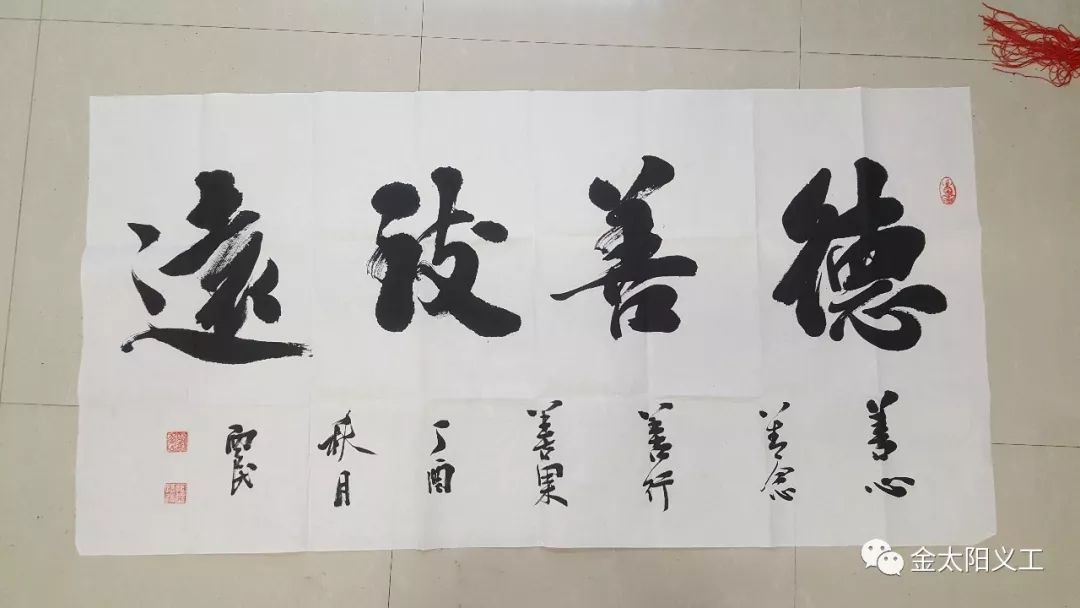 德善致遠
善心
善念
善行
善果
丁酉
秋月
金太阳义工